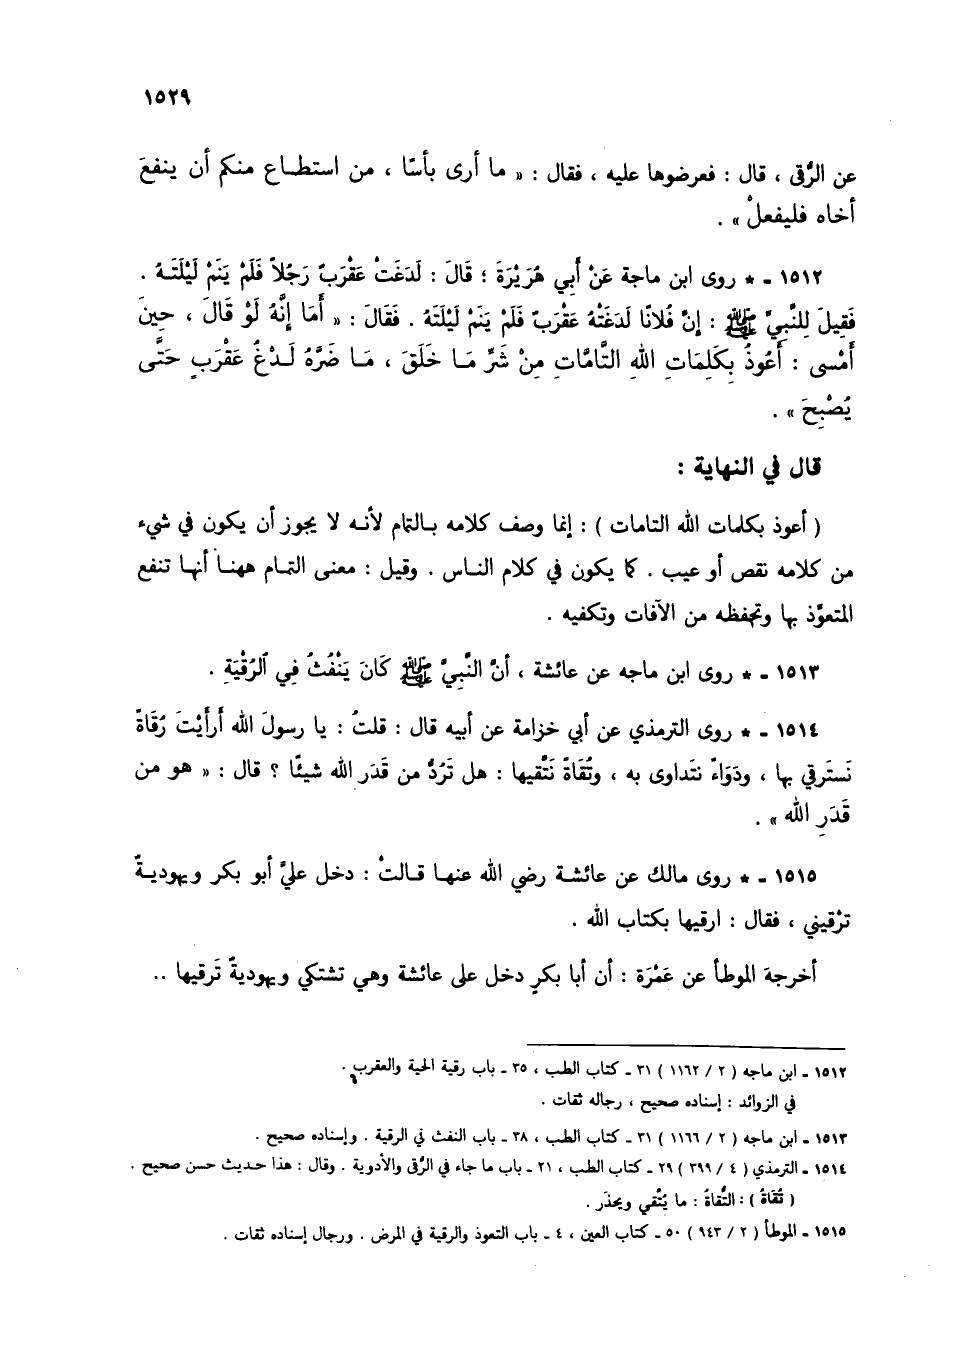 ١٥٢٩
عن الرُّقى ، قال : فعرضوها عليه ، فقال : « ما أرى بأسًا ، من استطـاع منكم أن ينفعَ
أخاه فليفعلْ » .
١٥١٢ ـ * روى ابن ماجة عَنْ أَبِي هُرَيْرَةَ ؛ قَالَ : لَدَغَتْ عَقْرَبٌ رَجُلاً فَلَمْ يَنَمْ لَيْلَتَـهُ .
فَقِيلَ لِلنَّبِيِّ ﷺ : إِنَّ فُلَانًا لَدَغَتْهُ عَقْرَبٌ فَلَمْ يَنَمْ لَيْلَتَهُ . فَقَالَ : « أَمَا إِنَّهُ لَوْ قَالَ ، حِينَ
أَمْسى : أَعُوذُ بِكَلِمَاتِ اللهِ التَّامَّاتِ مِنْ شَرِّ مَـا خَلَقَ ، مَـا ضَرَّهُ لَـدْغُ عَقْرَبٍ حَتَّى
يُصْبِحَ » .
قال في النهاية :
( أعوذ بكلمات الله التامات ) : إنما وصف كلامه بـالتمام لأنـه لا يجوز أن يكون في شيء
من كلامه نقص أو عيب . كما يكون في كلام النـاس . وقيل : معنى التمـام ههنـا أنهـا تنفع
المتعوِّذ بها وتحفظه من الآفات وتكفيه .
١٥١٣ ـ * روى ابن ماجه عن عائشة ، أنَّ النَّبِيَّ ﷺ كَانَ يَنْفُثُ فِي الرُّقْيَةِ .
١٥١٤ ـ * روى الترمذي عن أبي خزامة عن أبيه قال : قلتُ : يا رسولَ الله أَرأَيْتَ رُقَاةً
نَسترقي بها ، ودَوَاءً نتَداوى به ، وتُقَاةً نَتَّقيها : هل تَرُدُّ من قَدَر الله شيئًا ؟ قال : « هو من
قَدَرِ الله » .
١٥١٥ ـ * روى مالك عن عائشـة رضي الله عنهـا قـالتْ : دخل عليَّ أبو بكر ويهوديـةٌ
ترْقيني ، فقال : ارقيها بكتاب الله .
أخرجهَ الموطأ عن عَمْرَة : أن أبا بكرٍ دخل على عائشة وهي تشتكي ويهوديةٌ تَرقيها ..
١٥١٢ ـ ابن ماجه ( ٢ / ١١٦٢ ) ٣١ ـ كتاب الطب ، ٣٥ ـ باب رقية الحية والعقرب .
في الزوائد : إسناده صحيح ، رجاله ثقات .
١٥١٣ ـ ابن ماجه ( ٢ / ١١٦٦ ) ٣١ ـ كتاب الطب ، ٣٨ ـ باب النفث في الرقية . وإسناده صحيح .
١٥١٤ ـ الترمذي ( ٤ / ٣٩٩ ) ٢٩ ـ كتاب الطب ، ٢١ ـ باب ما جاء في الرُّقى والأدوية . وقال : هذا حـديث حسن صحيح .
( تُقَاةً ) : التُّقاةُ : ما يُتَّقي ويحذَر .
١٥١٥ ـ الموطأ ( ٢ / ٩٤٣ ) ٥٠ ـ كتاب العين ، ٤ ـ باب التعوذ والرقية في المرض . ورجال إسناده ثقات .